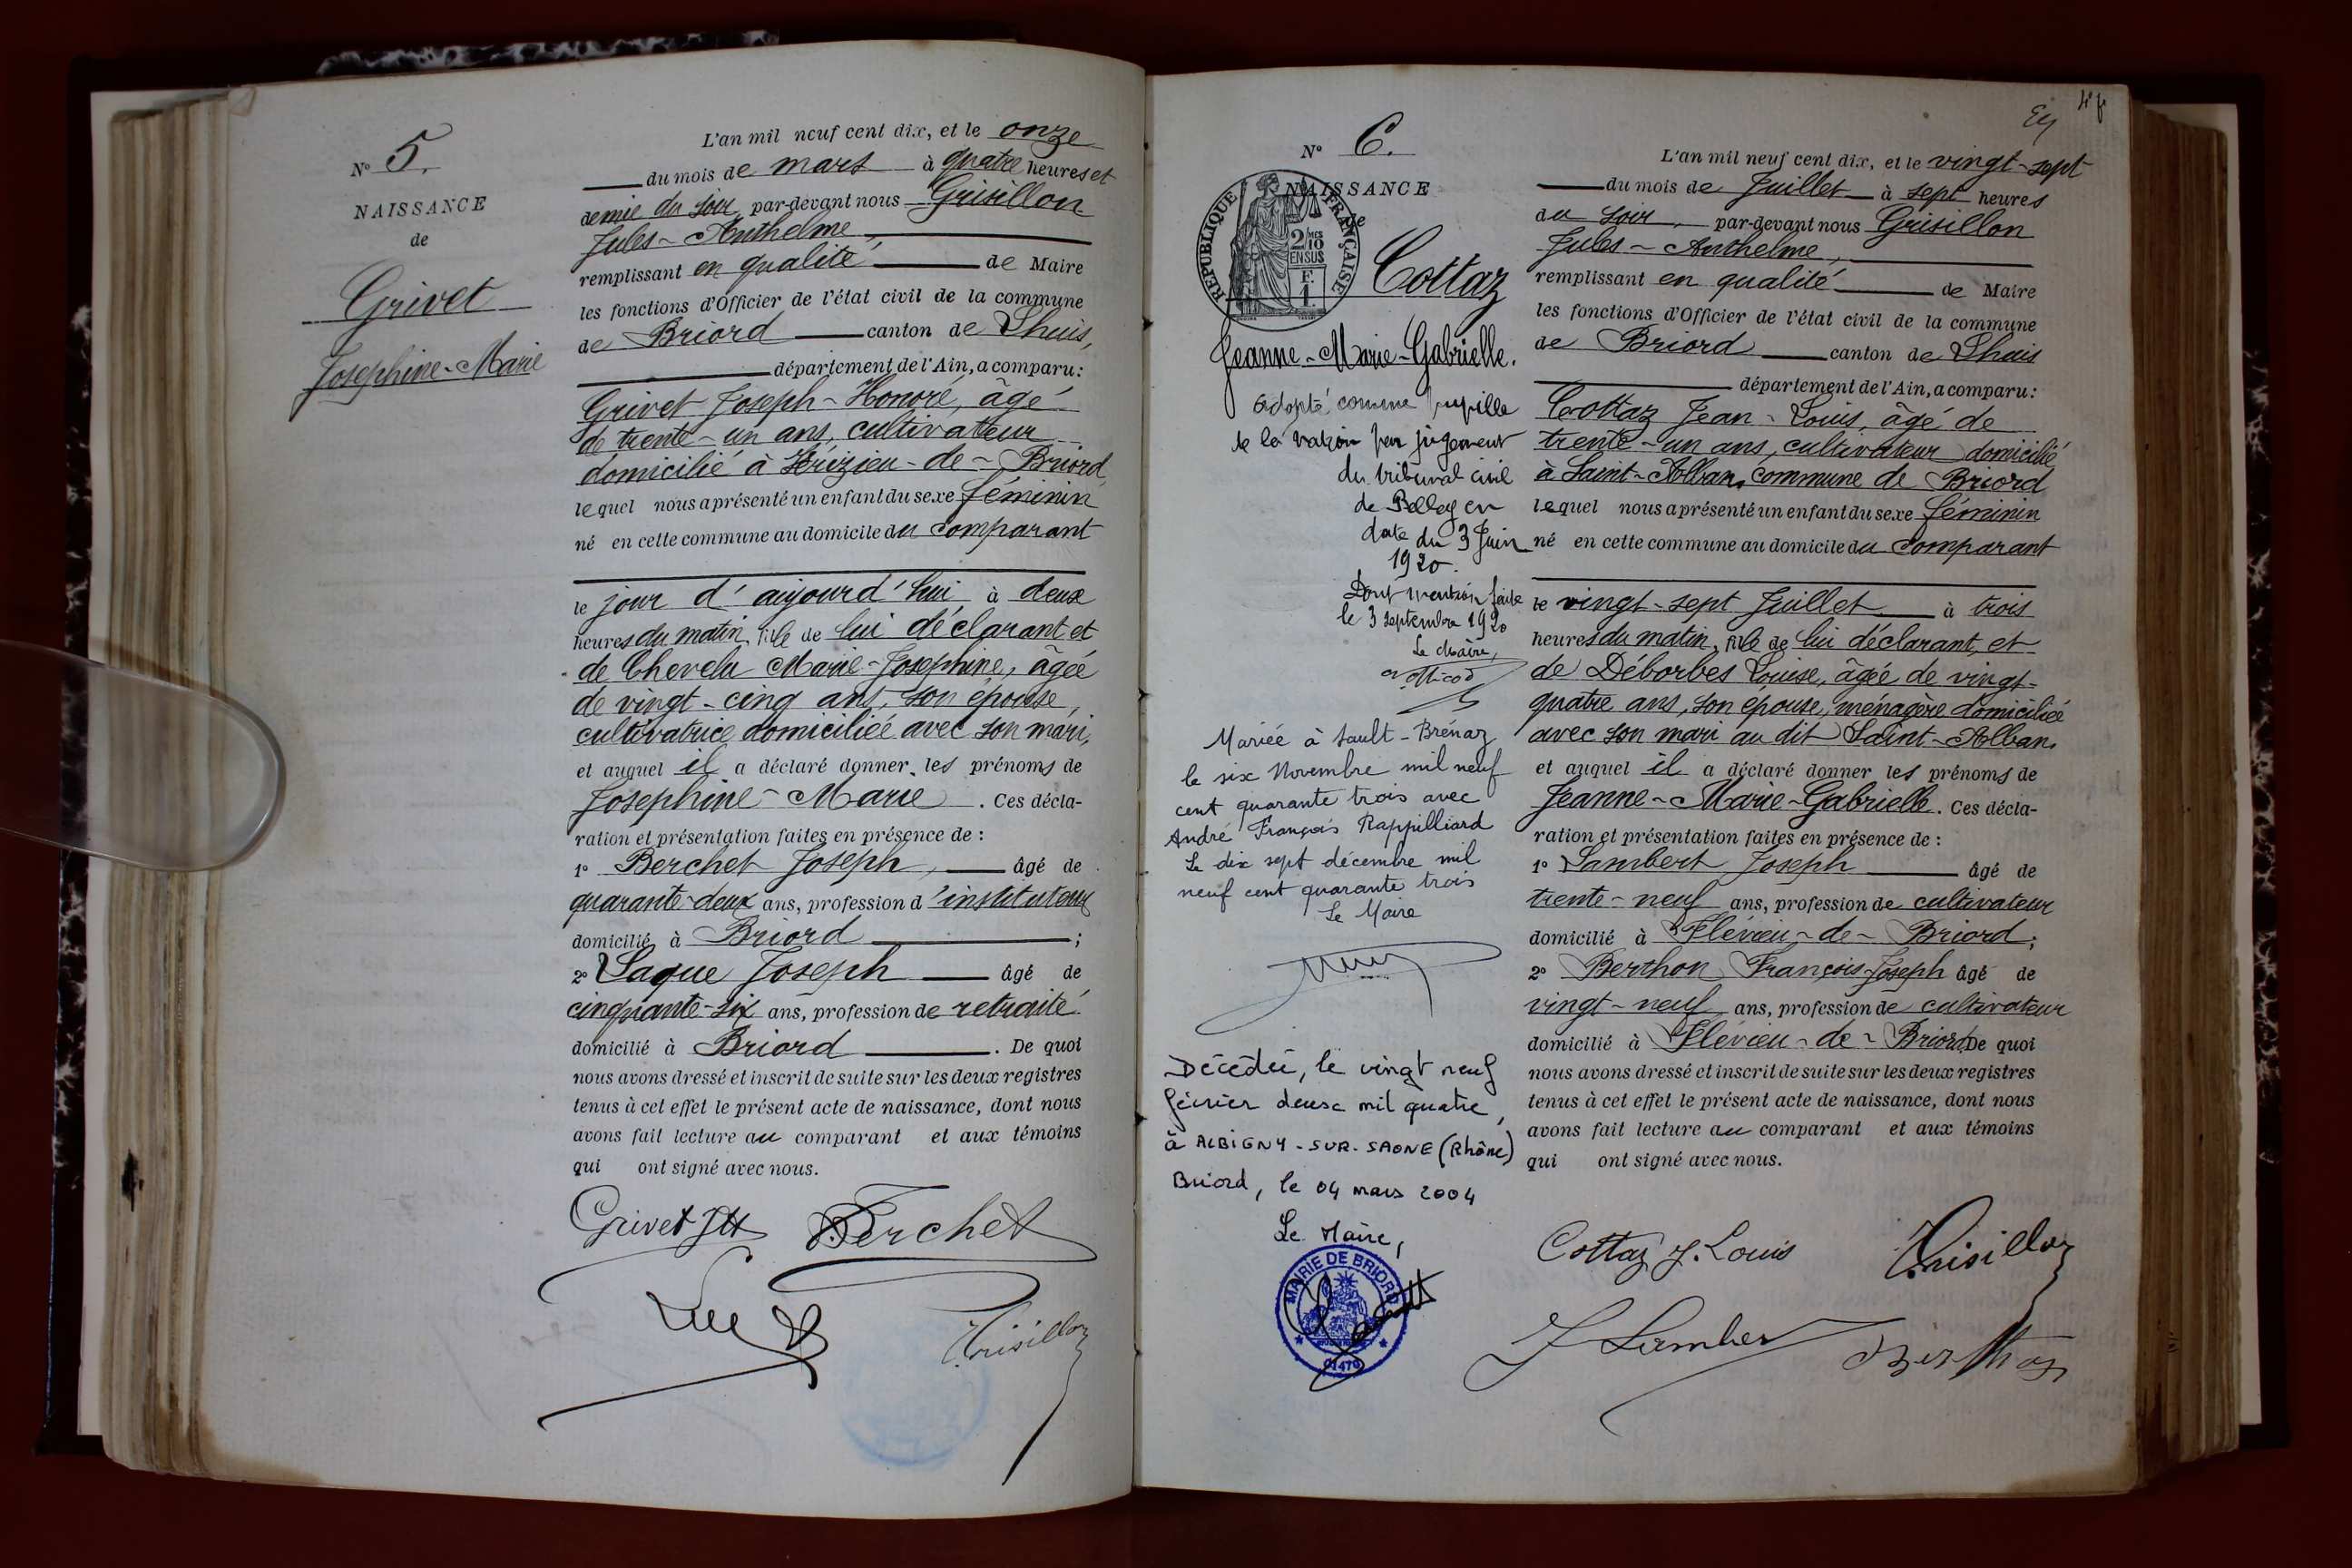 N° 5.
NAISSANCE
de
Grivet
Josephine-Marie
L'an mil neuf cent dix, et le onze
du mois de mars à quatre heures et
demie du soir par-devant nous Grisillon
Jules-Anthelme
remplissant en qualité de Maire
les fonctions d'Officier de l'état civil de la commune
de Briord canton de Lhuis,
département de l'Ain, a comparu :
Grivet Joseph-Honoré, âgé
de trente-un ans, cultivateur
domicilié à Vérizieu-de-Briord
lequel nous a présenté un enfant du sexe féminin
né en cette commune au domicile du comparant
le jour d'aujourd'hui à deux
heures du matin, fille de lui déclarant et
de Chevelu Marie-Josephine, âgée
de vingt-cinq ans, son épouse,
cultivatrice domiciliée avec son mari,
et auquel il a déclaré donner les prénoms de
Josephine-Marie. Ces décla-
ration et présentation faites en présence de :
1° Berchet Joseph, âgé de
quarante-deux ans, profession d'instituteur
domicilié à Briord ;
2° Laque Joseph âgé de
cinquante-six ans, profession de retraité
domicilié à Briord. De quoi
nous avons dressé et inscrit de suite sur les deux registres
tenus à cet effet le présent acte de naissance, dont nous
avons fait lecture au comparant et aux témoins
qui ont signé avec nous.
Grivet Berchet
Grisillon
N° 6.
NAISSANCE
de
RÉPUBLIQUE FRANÇAISE
2/10 MES
EN SUS
F.
1
Cottaz
Jeanne-Marie-Gabrielle.
Adopté comme pupille
de la nation par jugement
du tribunal civil
de Belley en
date du 3 Juin
1920.
Dont mention faite
le 3 septembre 1920
Le Maire,
Mariée à Sault-Brénaz
le six Novembre mil neuf
cent quarante trois avec
André François Rappilliard
Le dix sept décembre mil
neuf cent quarante trois
Le Maire
Décédée, le vingt neuf
février deux mil quatre,
à ALBIGNY-SUR-SAONE (Rhône)
Briord, le 04 mars 2004
Le Maire,
MAIRIE DE BRIORD
01470
L'an mil neuf cent dix, et le vingt-sept
du mois de Juillet à sept heures
du soir, par-devant nous Grisillon
Jules-Anthelme,
remplissant en qualité de Maire
les fonctions d'Officier de l'état civil de la commune
de Briord canton de Lhuis
département de l'Ain, a comparu :
Cottaz Jean-Louis, âgé de
trente-un ans, cultivateur domicilié
à Saint-Alban, commune de Briord
lequel nous a présenté un enfant du sexe féminin
né en cette commune au domicile du comparant
le vingt-sept Juillet à trois
heures du matin, fille de lui déclarant, et
de Déborbes Louise, âgée de vingt-
quatre ans, son épouse, ménagère domiciliée
avec son mari au dit Saint-Alban.
et auquel il a déclaré donner les prénoms de
Jeanne-Marie-Gabrielle. Ces décla-
ration et présentation faites en présence de :
1° Lambert Joseph âgé de
trente-neuf ans, profession de cultivateur
domicilié à Flévieu-de-Briord ;
2° Berthon François-Joseph âgé de
vingt-neuf ans, profession de cultivateur
domicilié à Flévieu-de-Briord. De quoi
nous avons dressé et inscrit de suite sur les deux registres
tenus à cet effet le présent acte de naissance, dont nous
avons fait lecture au comparant et aux témoins
qui ont signé avec nous.
Cottaz J. Louis Grisillon
J Lambert Berthon